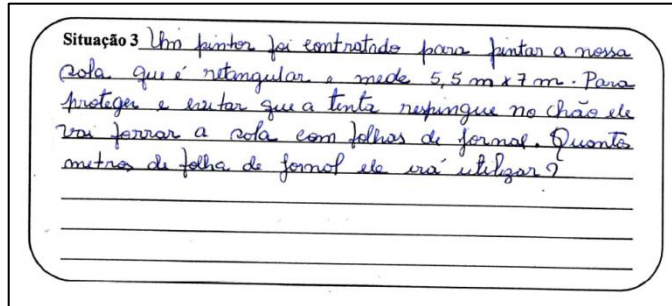 Situação 3 Um pintor foi contratado para pintar a nossa
sala que é retangular e mede 5,5 m x 7 m. Para
proteger e evitar que a tinta respingue no chão ele
vai forrar a sala com folhas de jornal. Quantos
metros de folha de jornal ele irá utilizar?